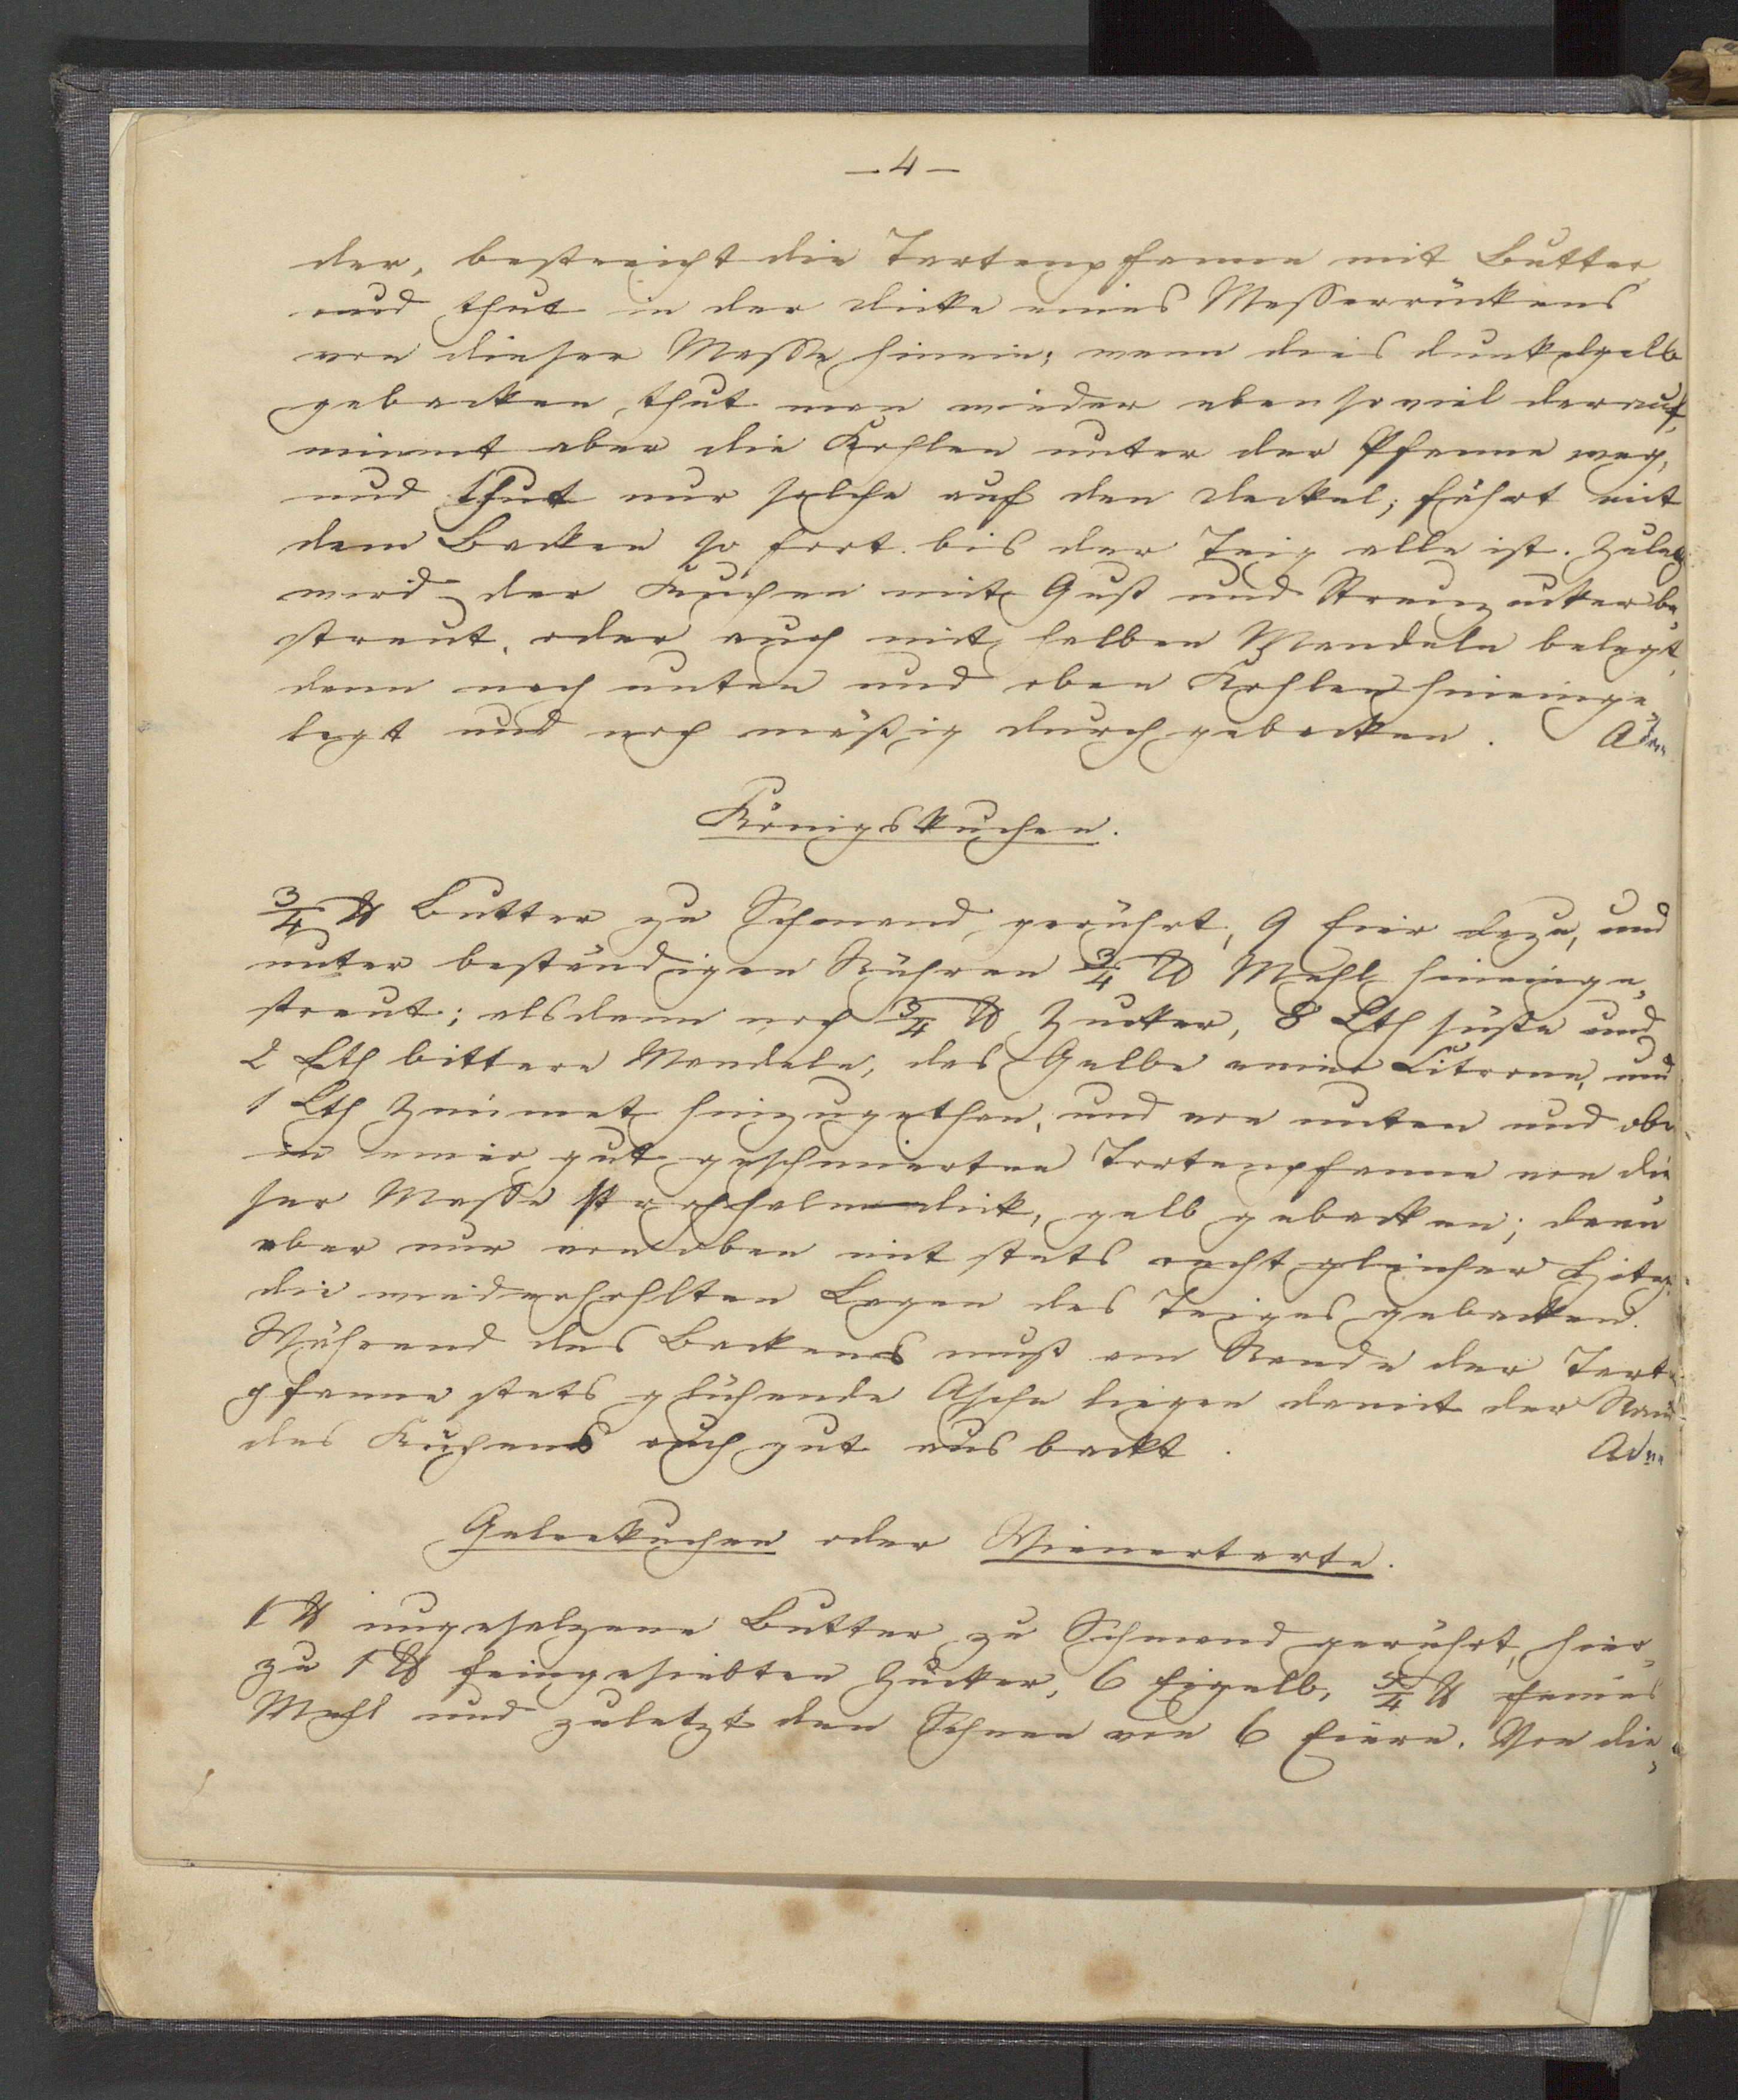 — 4 —
der, bestreicht die Tortenpfanne mit Butter
und thut in der Dicke eines Messerrückens
von dieser Masse hinein; wenn dies dunkelgelb
gebacken, thut man wieder eben so viel darauf,
nimmt aber die Kohlen unter der Pfanne weg,
und thut nur solche auf den Deckel; fährt mit
dem Backen so fort bis der Teig alle ist. Zuletzt
wird der Kuchen mit Guß und Streuzucker be„
streut, oder auch mit halben Mandeln belegt,
dann nach unten und oben Kohlen hineinge„
legt und noch mäßig durchgebacken.
Königskuchen.
3/4 ℔ Butter zu Schmand gerührt, 9 Eier dazu, und
unter beständigen Rühren 3/4 ℔ Mehl hineinge„
streut; alsdann noch 3/4 ℔ Zucker, 8 Lth süße und
2 Lth bittere Mandeln, das Gelbe einer Citrone, und
1 Lth Zimmet hinzugethan, und von unten und oben
in einer gut geschmierten Tortenpfanne von die
ser Masse strohhalmdick, gelb gebacken; dann
aber nur von oben mit stets recht gleicher Hitze
die wiederhohlten Lagen des Teiges gebacken.
Während des Backens muß am Rande der Torten
pfanne stets glühende Asche liegen damit der Rand
des Kuchens auch gut aus backt.
Geleekuchen oder Wienertorte.
1 ℔ ungesalzene Butter zu Schmand gerührt, hier„
zu 1 ℔ feingesiebten Zucker, 6 Eigelb, 5/4 ℔ feines
Mehl und zuletzt den Schnee von 6 Eiern. Von die„